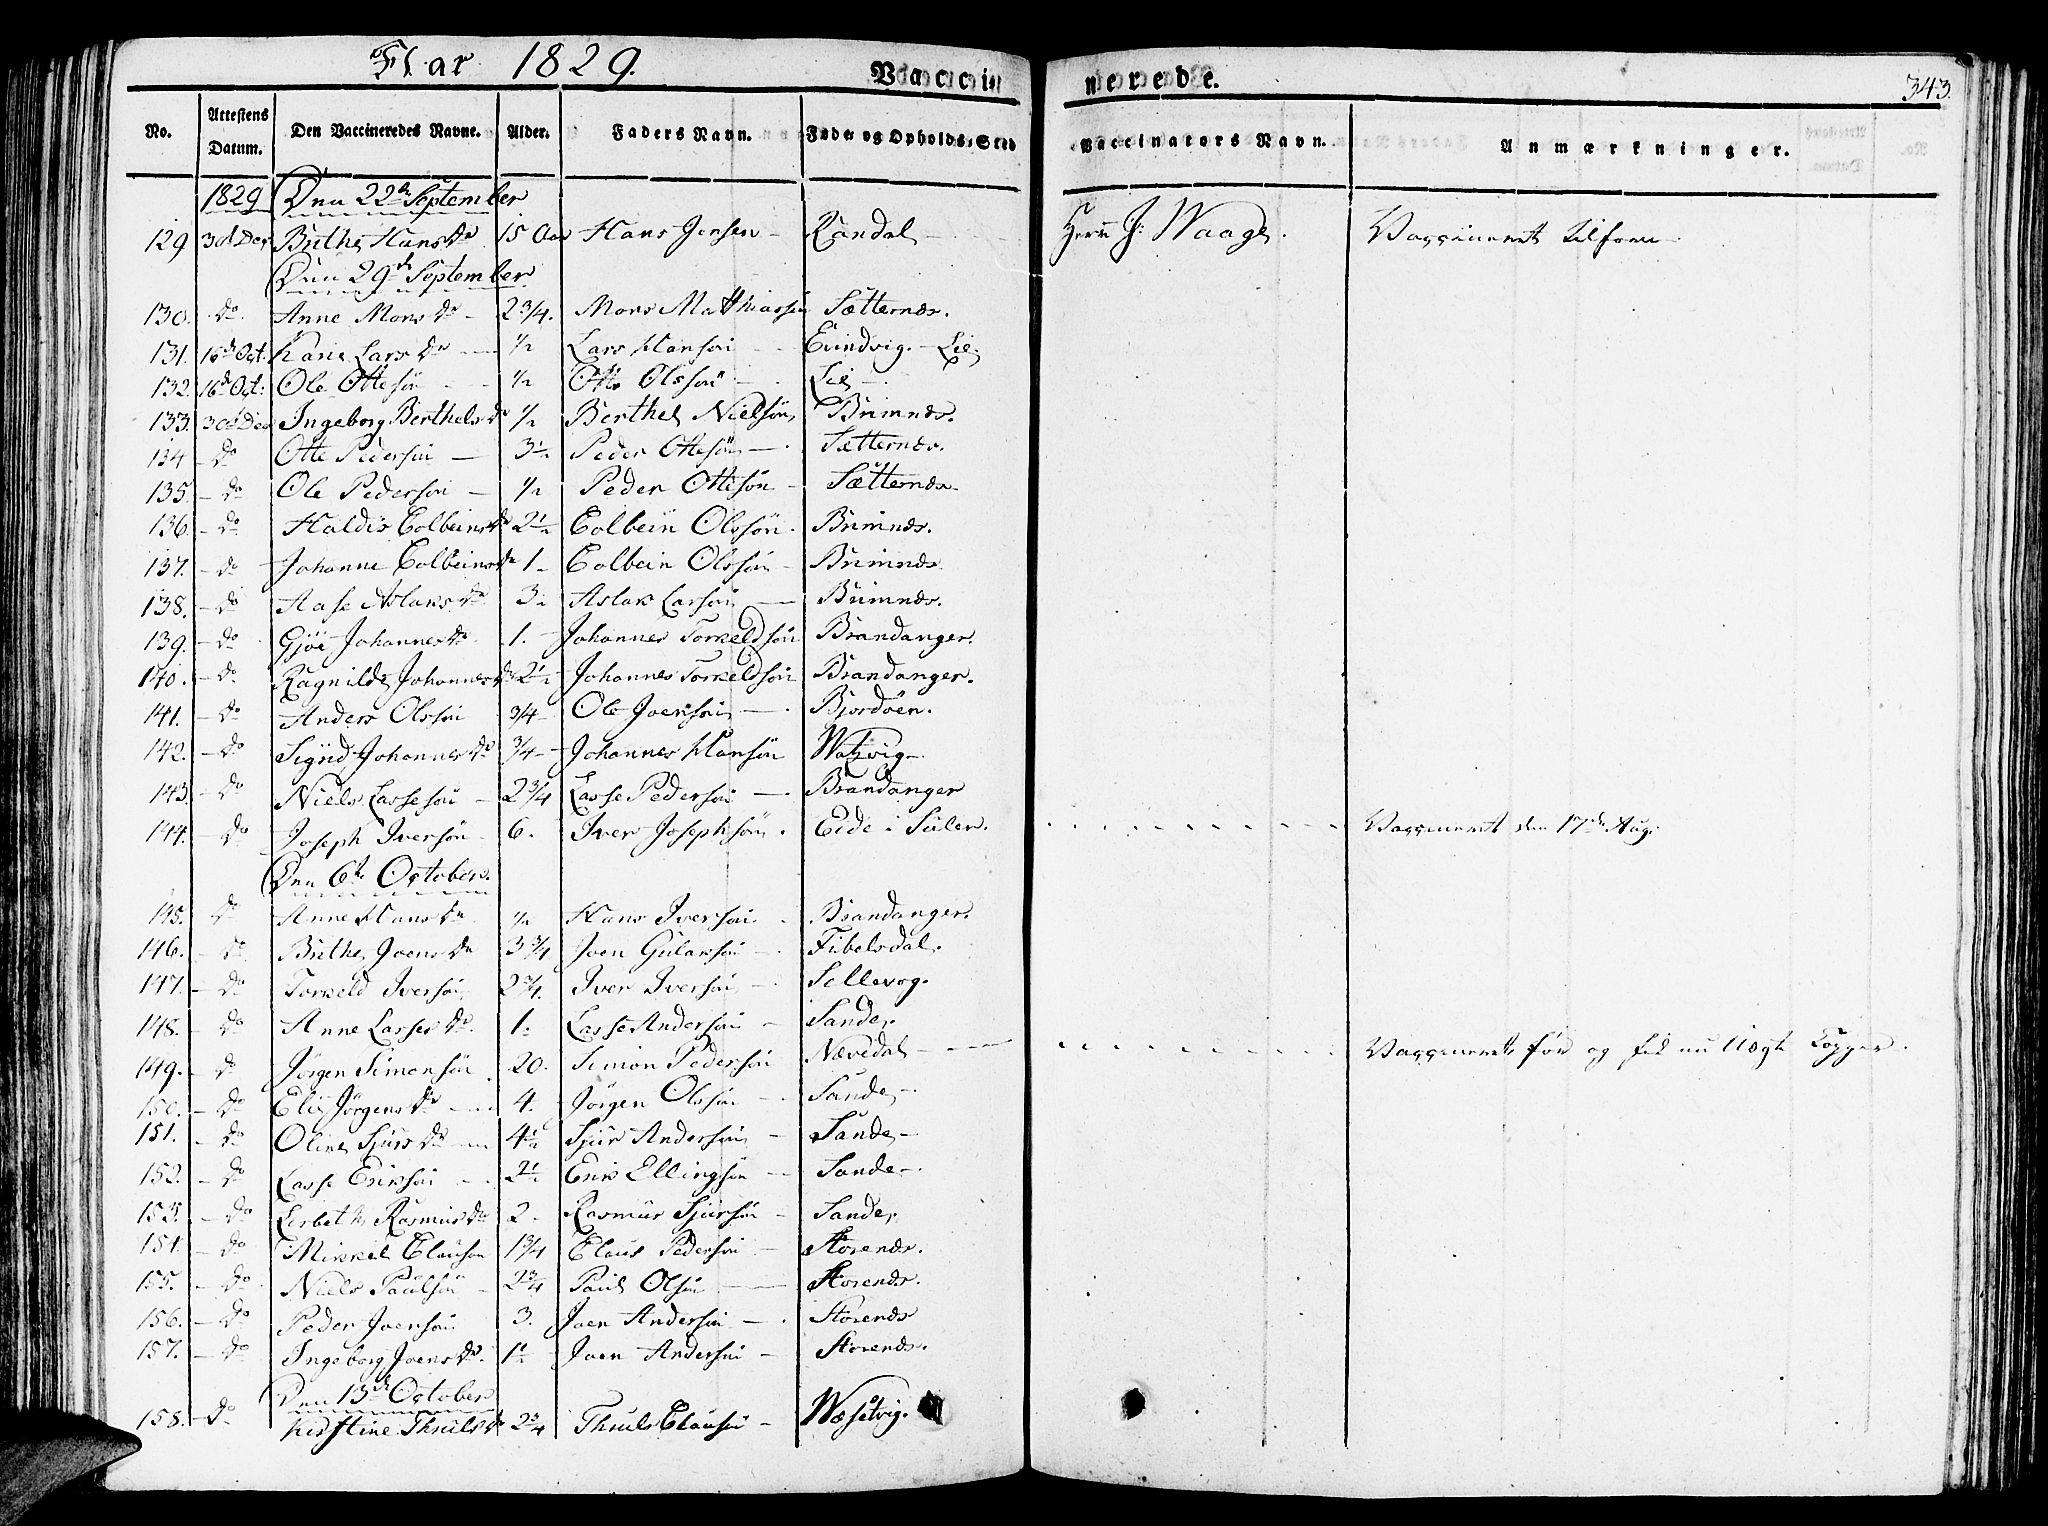 Aar 1829.
Vaccinerede.
343.
No. | Attestens Datum. | Den Vaccineredes Navne. | Alder. | Faders Navn. | Føde og Opholds-Sted | Vaccinators Navn. | Anmærkninger.
1829 | Den 22de September
129 | 3d Dec | Brithe Hans Dr | 15 Aar | Hans Jensen | Randal | Herr J: Waage. | Vaccineret tilforn
Den 29de September
130. | do. | Anne Mons Dr | 2 3/4. | Mons Matthiassen | Sætternæs.
131. | 16de Oct: | Karie Lars Dr | 1/2 | Lars Hansøn | Evindvig. - Lie
132. | 16de Oct: | Ole Ottesøn | 1/2 | Otte Olssøn | Lie
133. | 3d Dec | Ingeborg Berthels Dr | 1/2 | Berthel Nielsøn | Brimnæs.
134 | do | Otte Pedersøn | 3 1/2 | Peder Ottesøn | Sætternæs.
135 | do | Ole Pedersøn | 1/2 | Peder Ottesøn | Sætternæs
136. | do | Haldis Colbeins Dr | 2 1/2 | Colbein Olssøn. | Brimnæs.
137. | do | Johanne Colbeins Dr | 1. | Colbein Olssøn | Brimnæs.
138. | do | Aase Aslaks Dr | 3 | Aslak Larsøn | Brimnæs.
139. | do | Gjøe Johannes Dr | 1. | Johannes Torkeldsøn | Brandanger.
140. | do | Ragnilde Johannes Dr | 2 1/2 | Johannes Torkeldsøn | Brandanger.
141. | do | Anders Olssøn | 3/4 | Ole Joensøn | Bjordøen.
142. | do | Sigrid Johannes Dr | 3/4 | Johannes Hansøn | Watzvig
143. | do | Niels Lassesøn | 2 3/4 | Lasse Pedersøn | Brandanger
144. | do | Joseph Iversøn | 6. | Iver Josephsøn. | Eide i Sulen. | Vaccineret den 17de Aug.
Den 6te October.
145. | do | Anne Hans Dr | 1/2 | Hans Iversøn | Brandanger.
146. | do | Brithe Joens Dr | 3 3/4 | Joen Gulaksøn | Fibelsdal.
147. | do | Torkeld Iversøn | 2 3/4. | Iver Iversøn | Sellevog.
148. | do | Anne Lasses Dr. | 1. | Lasse Andersøn | Sande.
149. | do | Jørgen Simonsøn | 20. | Simon Pedersøn | Nævedal | Vaccineret før og fik nu Uægte Copper.
150. | do | Elie Jørgens Dr | 4. | Jørgen Olssøn | Sande
151. | do | Oline Sjurs Dr | 4 1/2 | Sjur Andersøn | Sande
152. | do | Lasse Eriksøn | 2 1/2 | Erik Ellingsøn | Sande
153. | do | Lisbeth Rasmus Dr | 2 | Rasmus Sjursøn | Sande
154. | do | Mikkel Clausøn | 1 3/4 | Claus Pedersøn | Storenæs.
155. | do | Niels Paulsøn | 2 3/4 | Paul Olsøn | Storenæs.
156. | do | Peder Joensøn | 3. | Joen Andersøn | Storenæs
157. | do | Ingeborg Joens Dr. | 1 1/2 | Joen Andersøn | Storenæs.
Den 13de October
158. | do | Kirstine Thruls Dr | 2 3/4 | Thruls Clausøn | Wæsetvig.